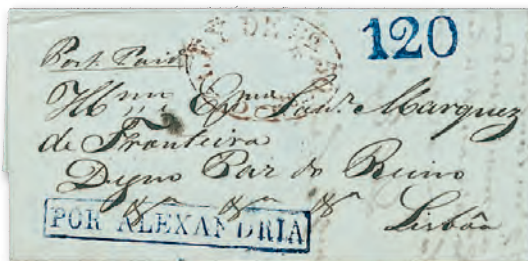 120
Port Paid
Illmo Exmo Senr. Marquez
de Fronteira
Digno Par do Reino
&ra &ra &ra
Lisbôa
POR ALEXANDRIA